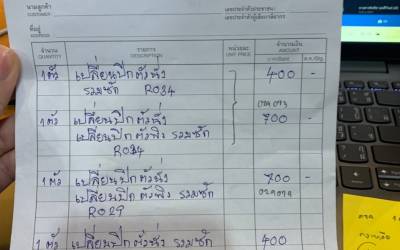 นามลูกค้า เลขประจำตัวประชาชน
CUSTOMER เลขประจำตัวผู้เสียภาษีอากร
ที่อยู่
ADDRESS
จำนวน รายการ หน่วยละ จำนวนเงิน
QUANTITY DESCRIPTION UNIT PRICE AMOUNT
1 ตัว เปลี่ยนปีกตัวนั่ง 400 -
รวมซัก R034
1 ตัว เปลี่ยนปีกตัวนั่ง 700 -
เปลี่ยนปีกตัวพิง รวมซัก
R024
1 ตัว เปลี่ยนปีกตัวนั่ง 700 -
เปลี่ยนปีกตัวพิง รวมซัก
R029
1 ตัว เปลี่ยนปีกตัวนั่ง รวมซัก 400